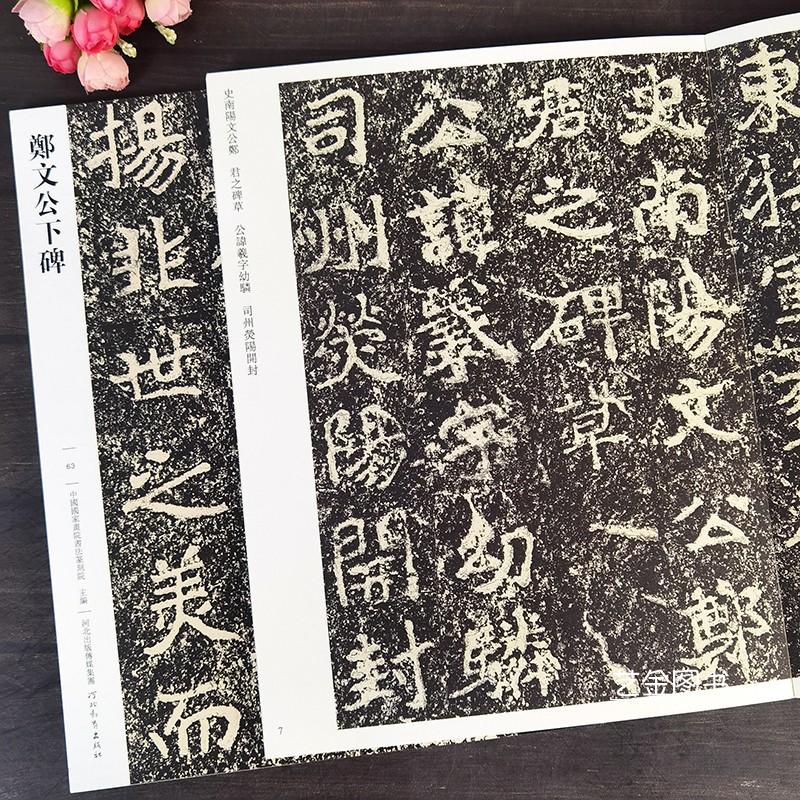 鄭文公下碑
63
中國國家畫院書法篆刻院 主編
河北出版傳媒集團
河北教育出版社
揚非世之美而
史南陽文公鄭 君之碑草 公諱羲字幼驎 司州滎陽開封
史南陽文公鄭
君之碑草
公諱羲字幼驎
司州滎陽開封
7
金图书